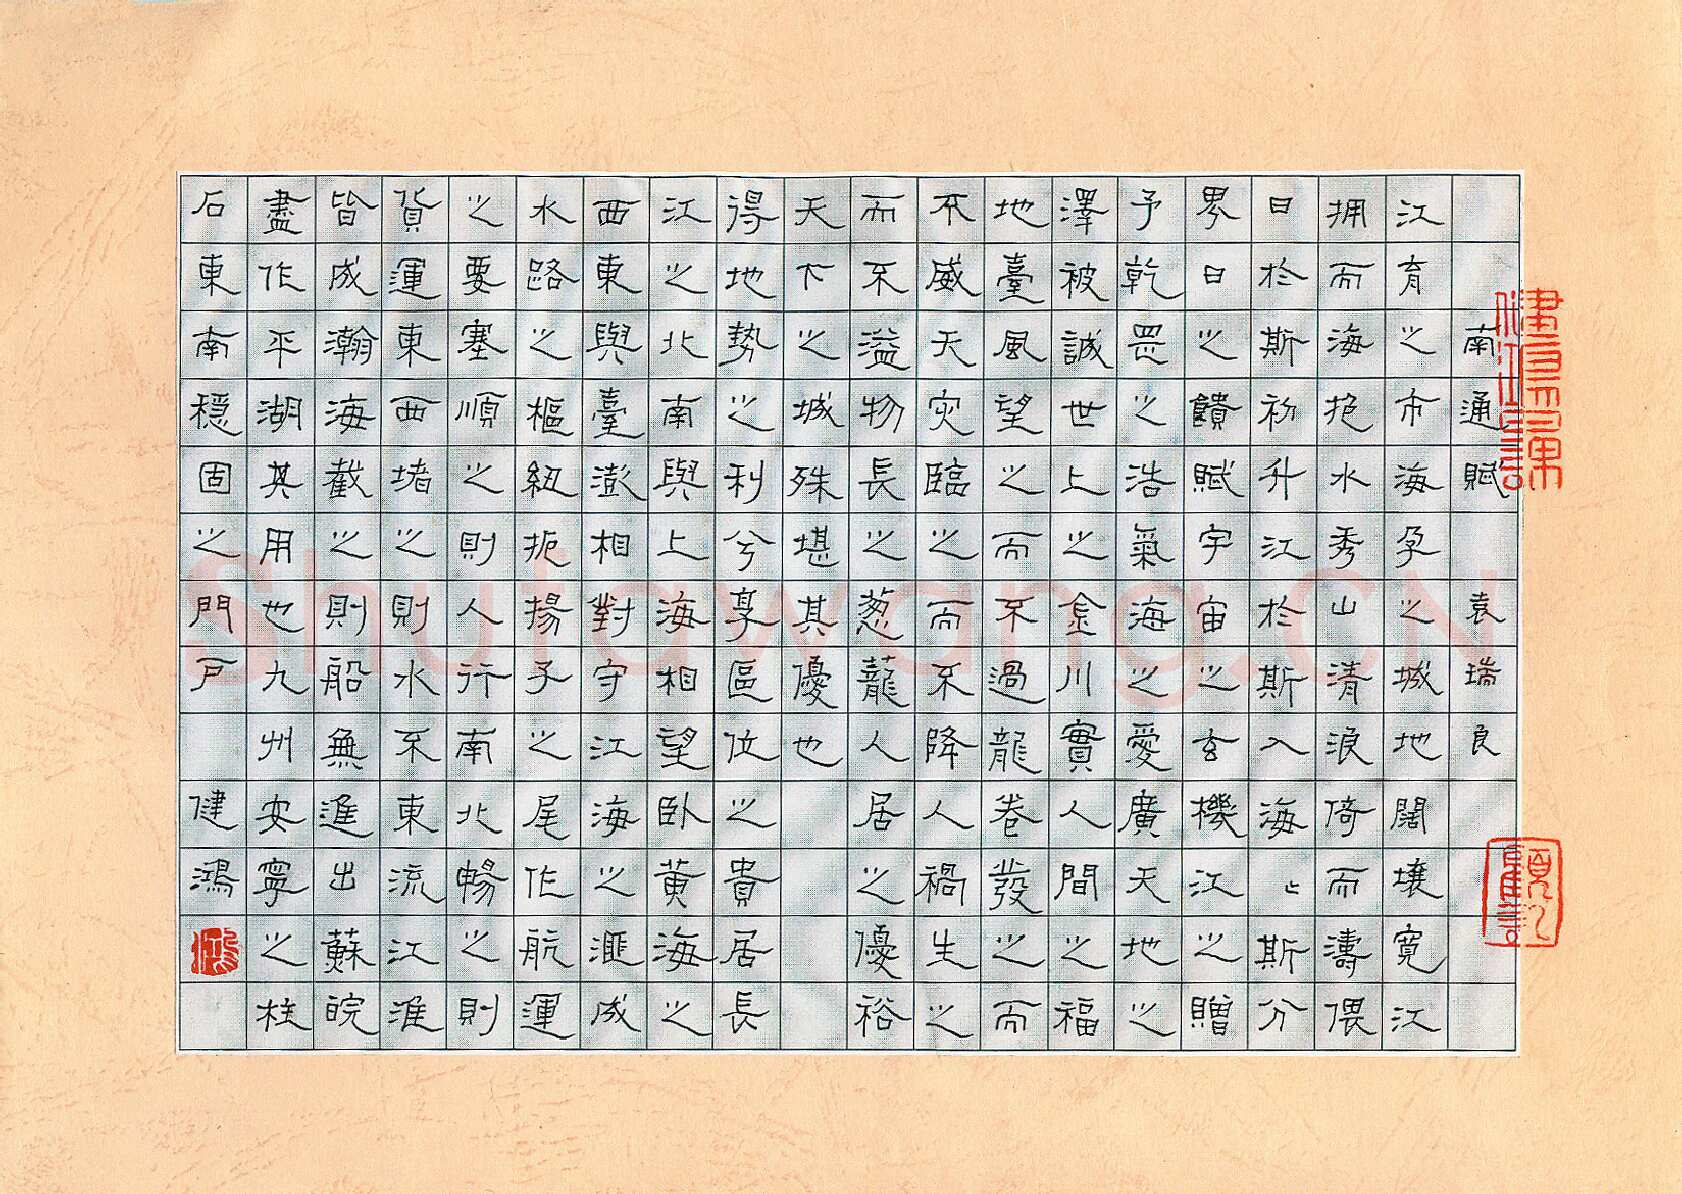 南通賦 袁瑞良
江育之市海孕之城地闊壤寬江
拥而海抱水秀山清浪倚而濤偎
日於斯初升江於斯入海〻斯分
界日之饋賦宇宙之玄機江之贈
予乾罡之浩氣海之愛廣天地之
澤被誠世上之金川實人間之福
地臺風望之而不過龍卷發之而
不威天灾臨之而不降人禍生之
而不溢物長之葱蘢人居之優裕
天下之城殊堪其優也
得地勢之利兮享區位之貴居長
江之北南與上海相望卧黄海之
西東與臺澎相對守江海之滙成
水路之樞紐扼揚子之尾作航運
之要塞順之則人行南北暢之則
貨運東西堵之則水不東流江淮
皆成瀚海截之則船無進出蘇皖
盡作平湖其用也九州安寧之柱
石東南穩固之門户 健鴻
Shufawang.CN